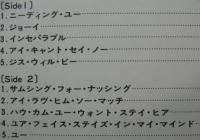 [Side 1]
1. ニーディング・ユー
2. ジョーイ
3. インセパラブル
4. アイ・キャント・セイ・ノー
5. ジス・ウィル・ビー
[Side 2]
1. サムシング・フォー・ナッシング
2. アイ・ラヴ・ヒム・ソー・マッチ
3. ハウ・カム・ユー・ウォント・ステイ・ヒア
4. ユア・フェイス・ステイズ・イン・マイ・マインド
5. ユー